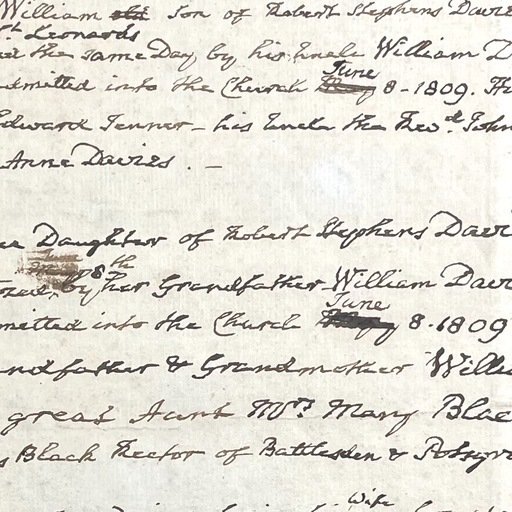 William Son of Robert Stephens Davie
St Leonards
the same Day by his Uncle William D
admitted into the Church June 8-1809. Hi
Edward Jenner - his Uncle the Revd. John
Anne Davies. -
Daughter of Robert Stephens Davi
8th
by her Grandfather William Davi
June
mitted into the Church 8-1809
ndfather & Grandmother Willia
great Aunt Mrs. Mary Blac
s Black Rector of Battlesden & Potsgro
Wife